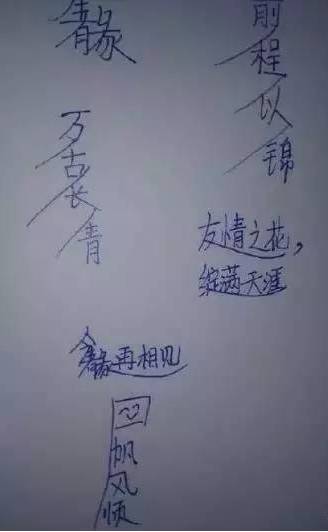 前程似锦
万古长青
友情之花，
绽满天涯
缘再相见
帆风顺